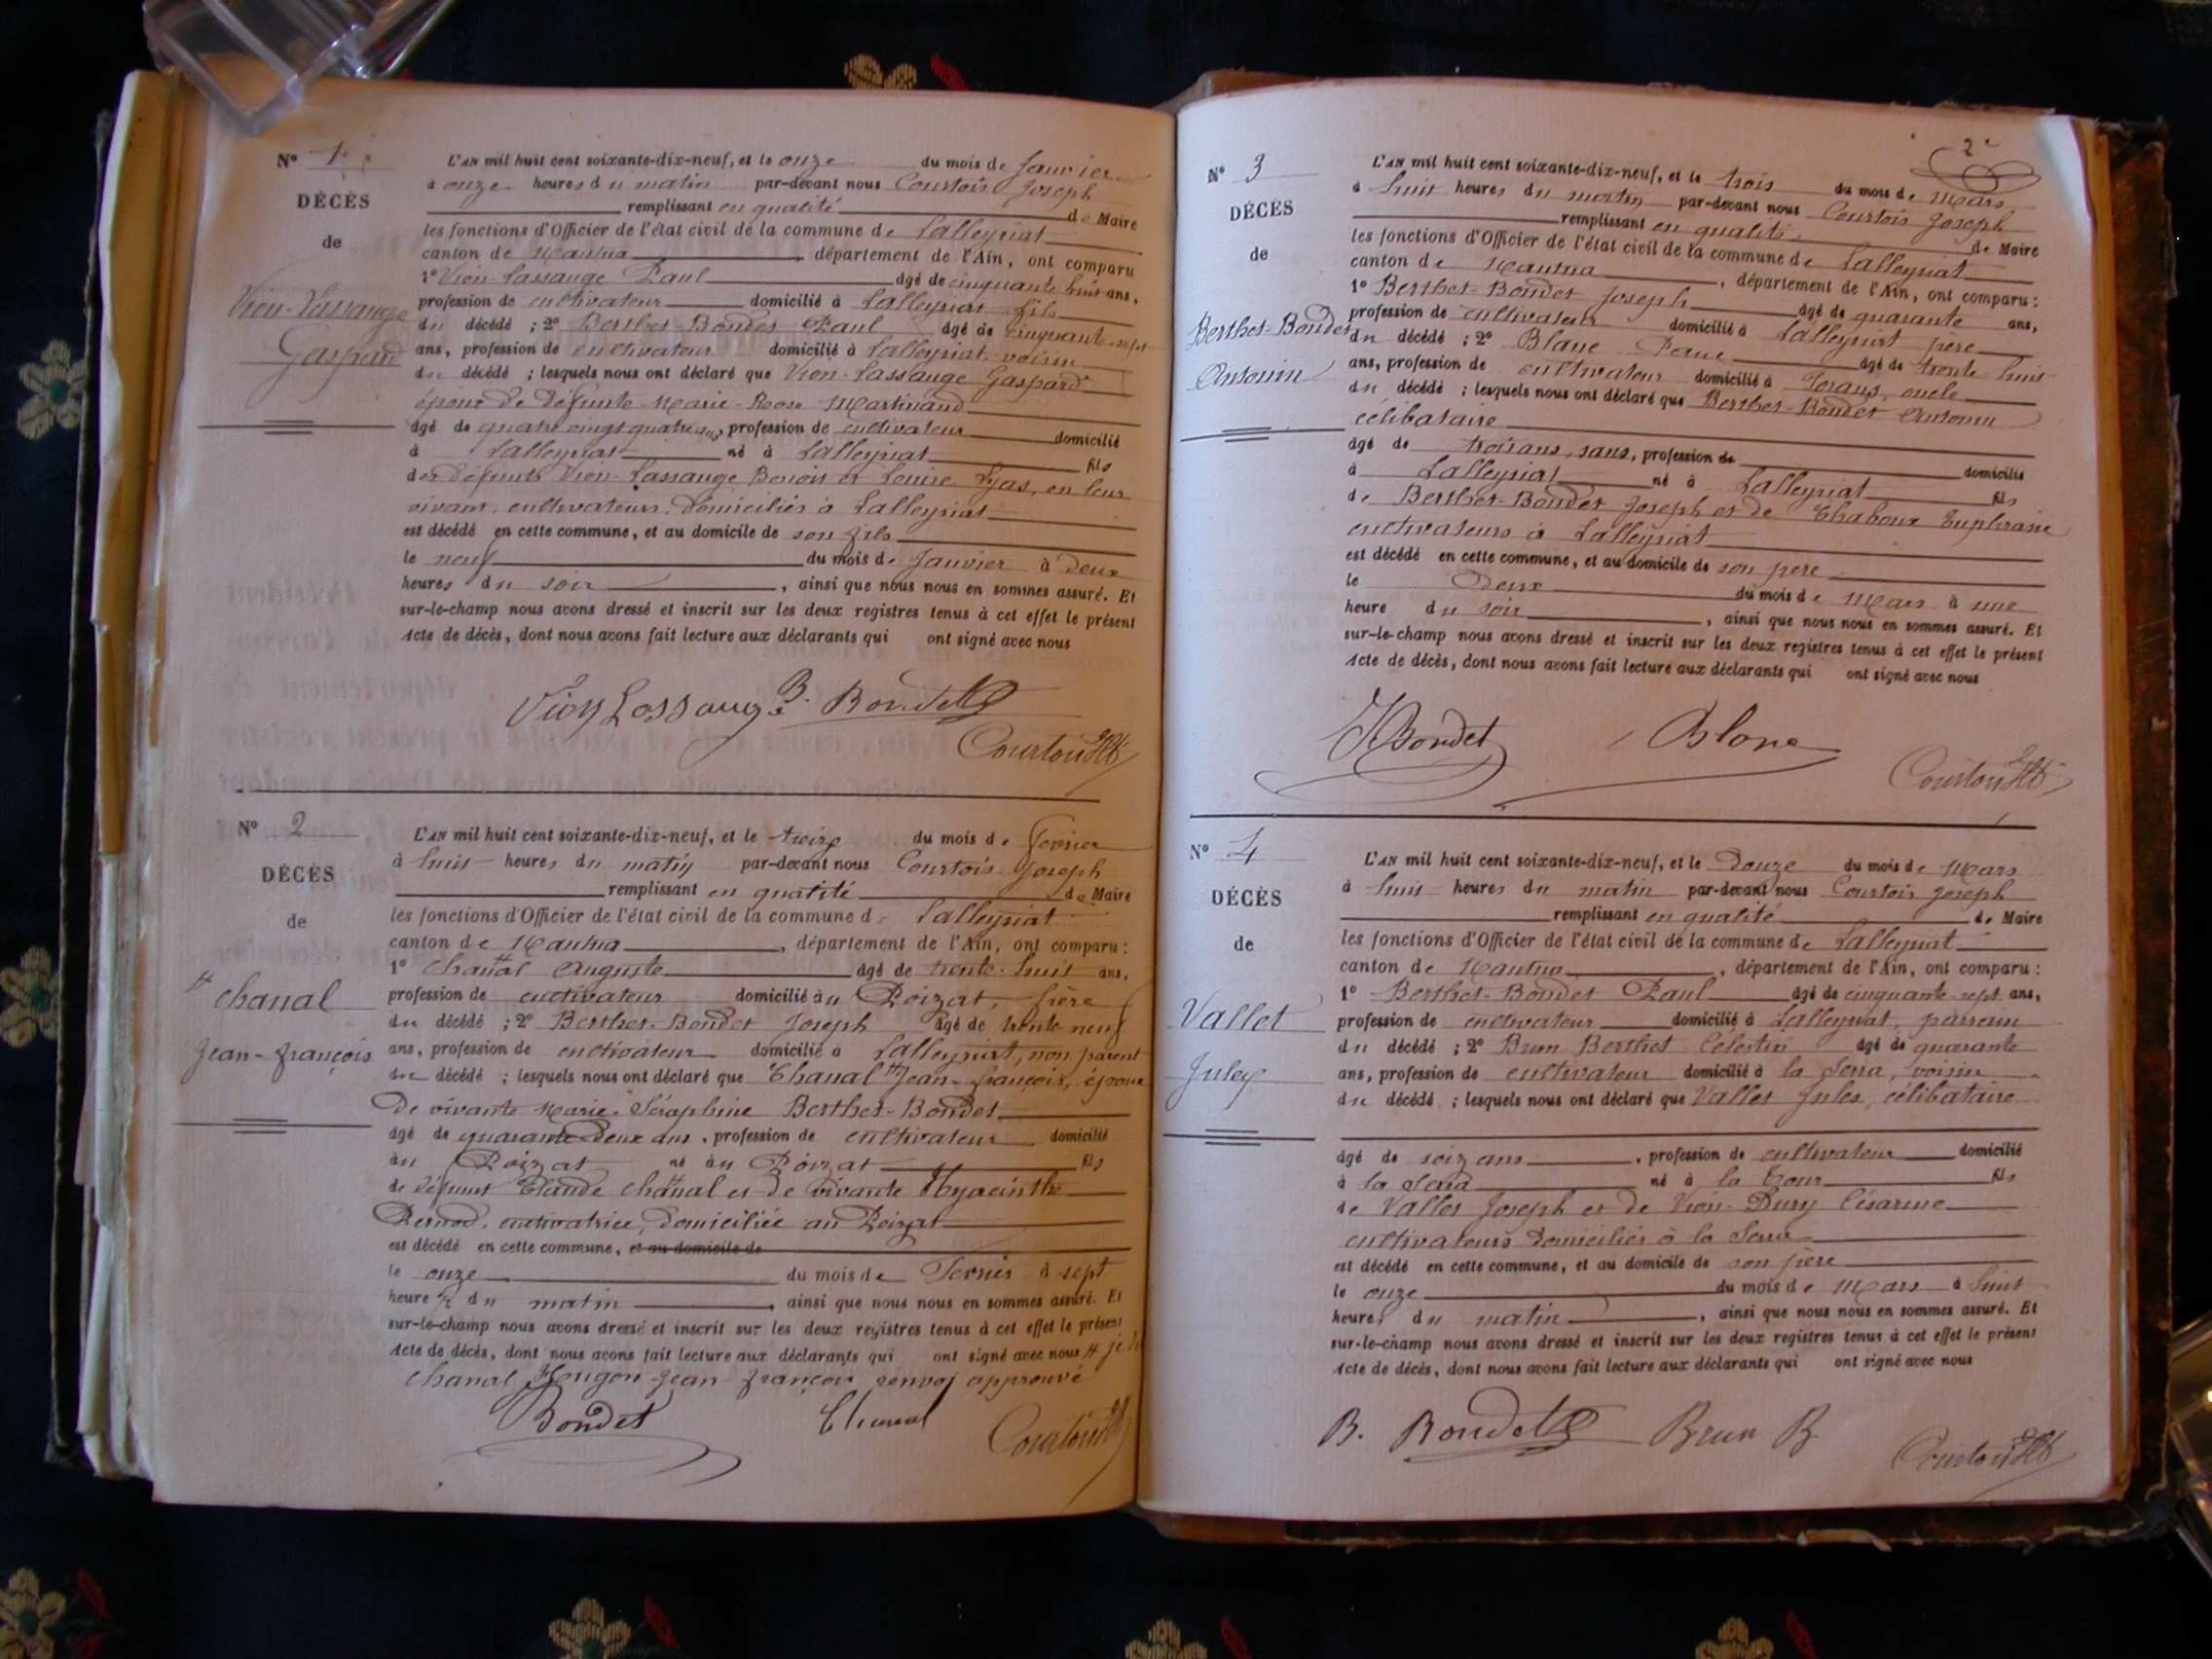 N° 1
DÉCÈS
de
Vion-Lassauge
Gaspard
L'AN mil huit cent soixante-dix-neuf, et le onze du mois de Janvier
à onze heures du matin par-devant nous Courtois Joseph
remplissant en qualité de Maire
les fonctions d'Officier de l'état civil de la commune de Lalleyriat
canton de Nantua, département de l'Ain, ont comparu
1° Vion-Lassauge Paul âgé de cinquante huit ans,
profession de cultivateur domicilié à Lalleyriat fils
du décédé ; 2° Berthet-Bondet Paul âgé de cinquante-sept
ans, profession de cultivateur domicilié à Lalleyriat, voisin
du décédé ; lesquels nous ont déclaré que Vion-Lassauge Gaspard
époux de défunte Marie-Rose Martinand
âgé de quatre vingt quatre ans, profession de cultivateur domicilié
à Lalleyriat né à Lalleyriat fils
des défunts Vion-Lassauge Benoit et Louise Lyas, en leur
vivant cultivateurs domiciliés à Lalleyriat
est décédé en cette commune, et au domicile de son fils
le neuf du mois de Janvier à deux
heures du soir, ainsi que nous nous en sommes assuré. Et
sur-le-champ nous avons dressé et inscrit sur les deux registres tenus à cet effet le présent
Acte de décès, dont nous avons fait lecture aux déclarants qui ont signé avec nous
Vion Lassauge B. Bondet
Courtois
N° 2
DÉCÈS
de
# Chanal
Jean-françois
L'AN mil huit cent soixante-dix-neuf, et le treize du mois de Fevrier
à huit heures du matin par-devant nous Courtois Joseph
remplissant en qualité de Maire
les fonctions d'Officier de l'état civil de la commune de Lalleyriat
canton de Nantua, département de l'Ain, ont comparu :
1° Chanal Auguste âgé de trente-huit ans,
profession de cultivateur domicilié au Poizat, frère
du décédé ; 2° Berthet-Bondet Joseph âgé de trente neuf
ans, profession de cultivateur domicilié à Lalleyriat, non parent
du décédé ; lesquels nous ont déclaré que Chanal # Jean-françois, époux
de vivante Marie-Séraphine Berthet-Bondet
âgé de quarante deux ans, profession de cultivateur domicilié
au Poizat né au Poizat fils
de défunt Claude Chanal et de vivante Hyacinthe
Pernod, cultivatrice, domiciliée au Poizat
est décédé en cette commune, et au domicile de
le onze du mois de Fevrier à sept
heures du matin, ainsi que nous nous en sommes assuré. Et
sur-le-champ nous avons dressé et inscrit sur les deux registres tenus à cet effet le présent
Acte de décès, dont nous avons fait lecture aux déclarants qui ont signé avec nous #
Chanal Hougon Jean-françois renvoi approuvé
Bondet Chanal Courtois
2
N° 3
DÉCÈS
de
Berthet-Bondet
Antonin
L'AN mil huit cent soixante-dix-neuf, et le trois du mois de Mars
à huit heures du matin par-devant nous Courtois Joseph
remplissant en qualité de Maire
les fonctions d'Officier de l'état civil de la commune de Lalleyriat
canton de Nantua, département de l'Ain, ont comparu :
1° Berthet-Bondet Joseph âgé de quarante ans,
profession de cultivateur domicilié à Lalleyriat père
du décédé ; 2° Blanc âgé de trente huit
ans, profession de cultivateur domicilié à oncle
du décédé ; lesquels nous ont déclaré que Berthet-Bondet Antonin
célibataire
âgé de trois ans, sans, profession de domicilié
à Lalleyriat né à Lalleyriat fils
de Berthet-Bondet Joseph et de Chaboux Euphrasie
cultivateurs à Lalleyriat
est décédé en cette commune, et au domicile de son père
le deux du mois de Mars à une
heure du soir, ainsi que nous nous en sommes assuré. Et
sur-le-champ nous avons dressé et inscrit sur les deux registres tenus à cet effet le présent
Acte de décès, dont nous avons fait lecture aux déclarants qui ont signé avec nous
JBondet Blanc
Courtois
N° 4
DÉCÈS
de
Vallet
Jules
L'AN mil huit cent soixante-dix-neuf, et le Douze du mois de Mars
à huit heures du matin par-devant nous Courtois Joseph
remplissant en qualité de Maire
les fonctions d'Officier de l'état civil de la commune de Lalleyriat
canton de Nantua, département de l'Ain, ont comparu :
1° Berthet-Bondet Paul âgé de cinquante-sept ans,
profession de cultivateur domicilié à Lalleyriat, parrain
du décédé ; 2° Brun Berthet Célestin âgé de quarante
ans, profession de cultivateur domicilié à la Serra, voisin
du décédé ; lesquels nous ont déclaré que Vallet Jules, célibataire
âgé de seiz ans, profession de cultivateur domicilié
à la Serra né à la Cour fils
de Vallet Joseph et de Vion-Dury Césarine
cultivateurs domiciliés à la Serra
est décédé en cette commune, et au domicile de son père
le onze du mois de Mars à huit
heures du matin, ainsi que nous nous en sommes assuré. Et
sur-le-champ nous avons dressé et inscrit sur les deux registres tenus à cet effet le présent
Acte de décès, dont nous avons fait lecture aux déclarants qui ont signé avec nous
B. Bondet Brun B
Courtois